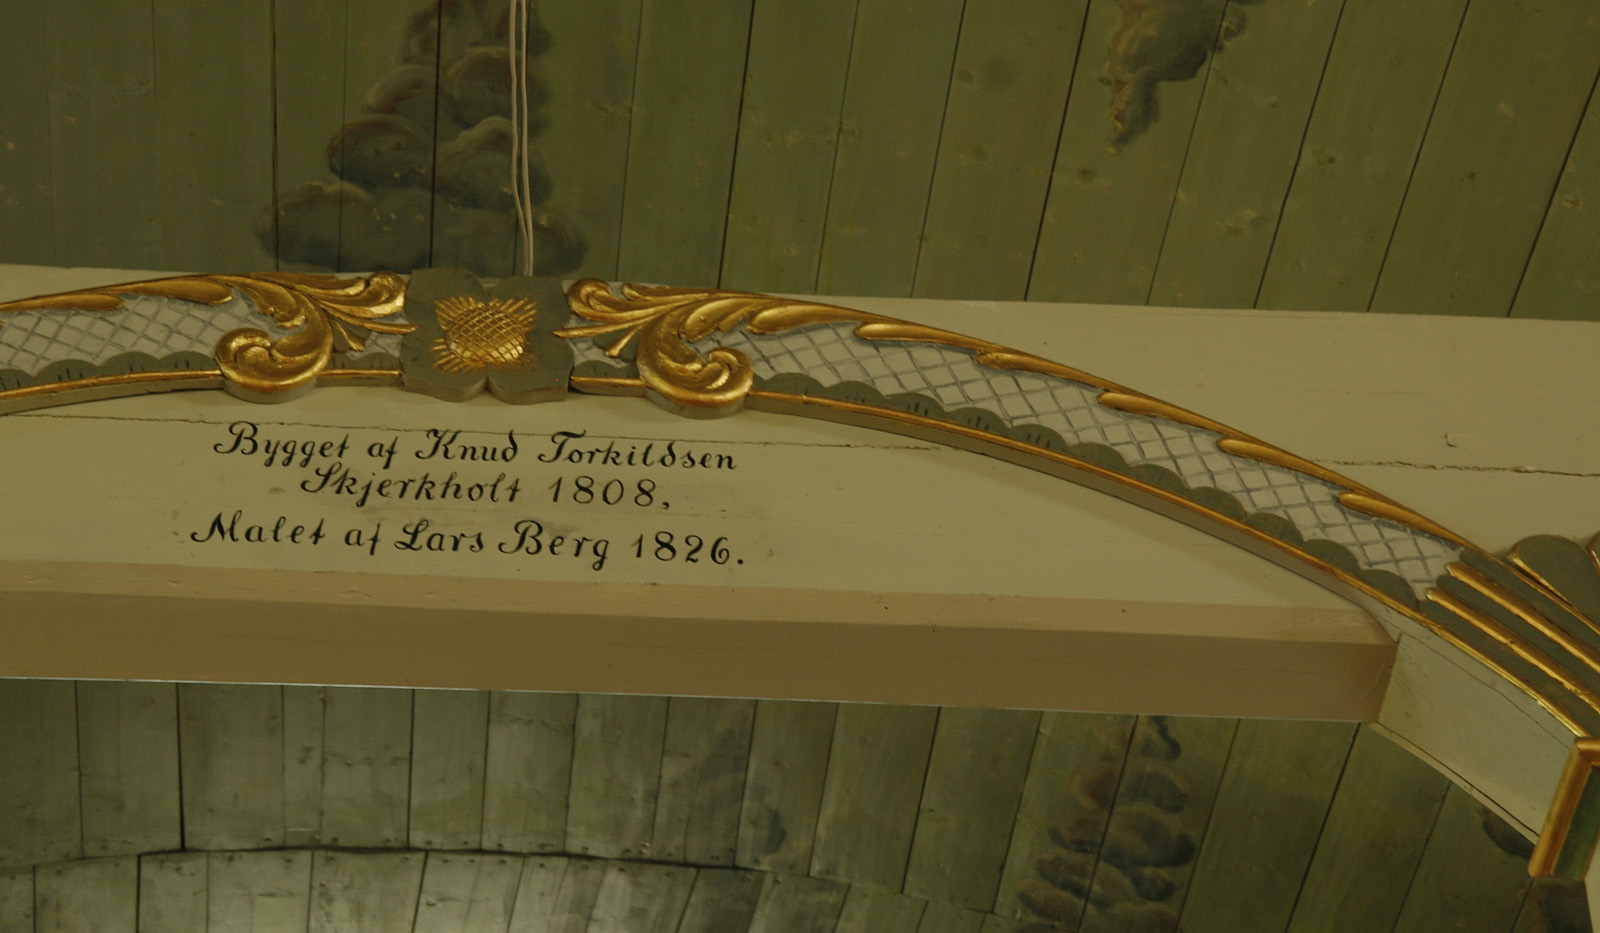 Bygget af Knud Torkildsen
Skjerkholt 1808,
Malet af Lars Berg 1826.